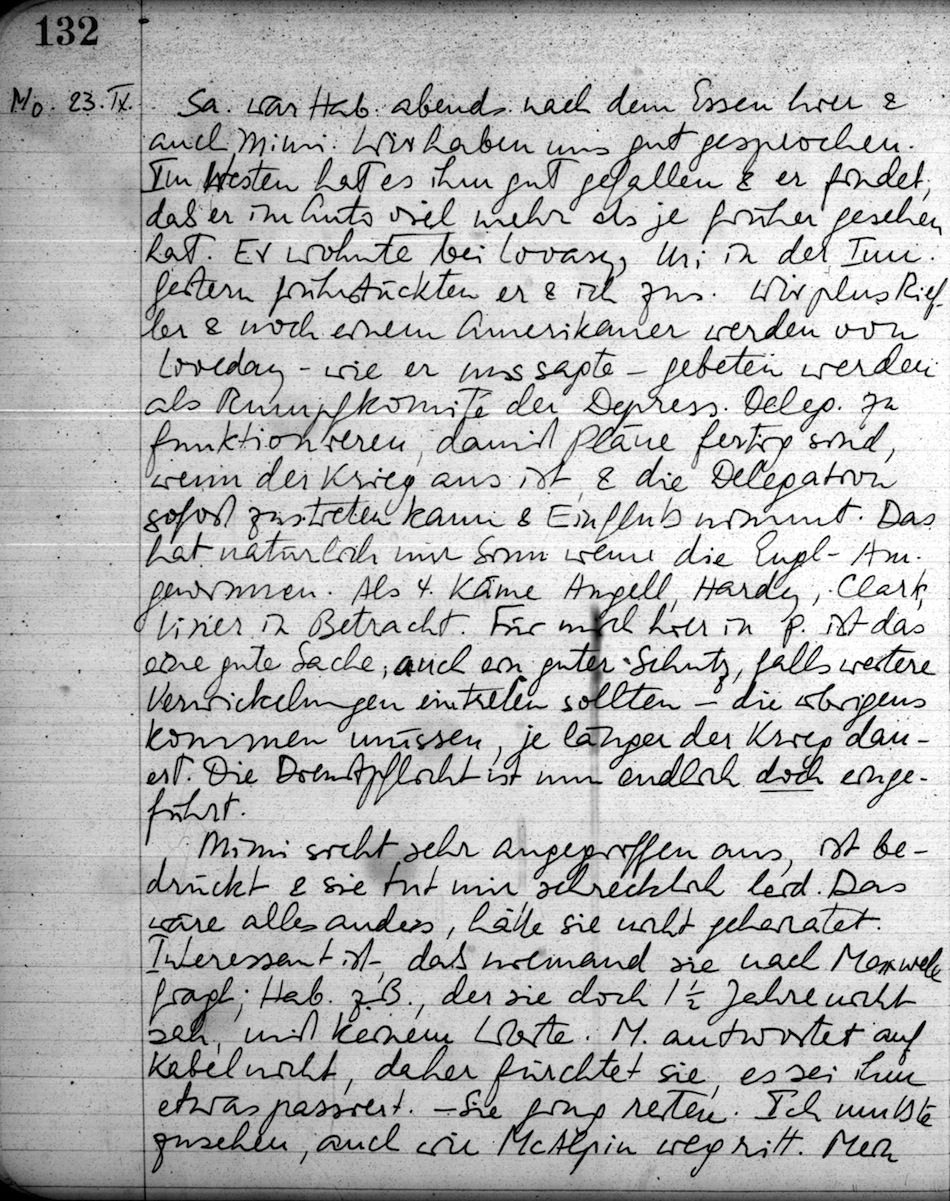 132
Mo. 23. IX. Sa. war Hab. abends nach dem Essen hier &
auch Mimi. Wir haben uns gut gesprochen.
Im Westen hat es ihm gut gefallen & er findet,
daß er im Auto viel mehr als je früher gesehen
hat. Er wohnte bei Lovasy, wir in der Inn.
Gestern frühstückten er & ich zus. Wir plus Rief-
ler & noch einem Amerikaner werden von
Loveday – wie er uns sagte – gebeten werden
als Rumpfkomité der Depress. Deleg. zu
funktionieren, damit Pläne fertig sind,
wenn der Krieg aus ist, & die Delegation
sofort zus.treten kann & Einfluß nimmt. Das
hat natürlich nur Sinn wenn die Engl-Am.
gewinnen. Als 4. käme Angell, Hardy, Clark,
Viner in Betracht. Für mich hier in P. ist das
eine gute Sache, auch ein guter Schutz, falls weitere
Verwickelungen eintreten sollten – die übrigens
kommen müssen, je länger der Krieg dau-
ert. Die Dienstpflicht ist nun endlich doch einge-
führt.
Mimi sieht sehr angegriffen aus, ist be-
drückt & sie tut mir schrecklich leid. Das
wäre alles anders, hätte sie nicht geheiratet.
Interessant ist, daß niemand sie nach Maxwell
fragt; Hab. z.B., der sie doch 1 ½ Jahre nicht
sah, mit keinem Worte. M. antwortet auf
Kabel nicht, daher fürchtet sie, es sei ihm
etwas passiert. – Sie ging reiten. Ich mußte
zusehen, auch wie McAlpin wegritt. Mein